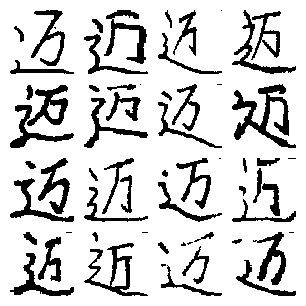 迈迈迈迈
迈迈迈迈
迈迈迈迈
迈近迈迈